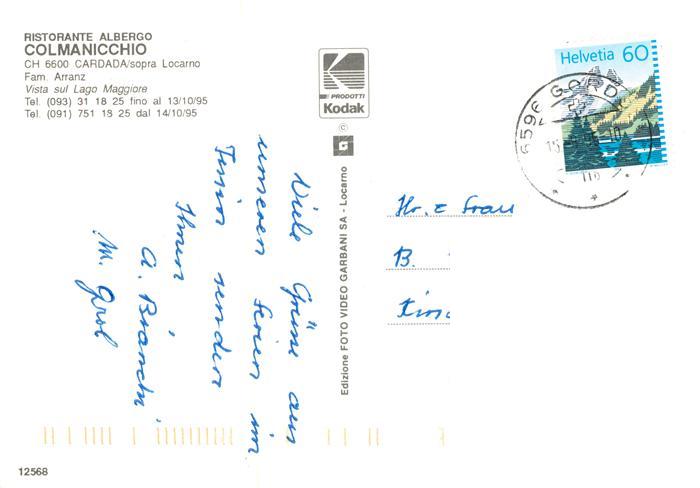 RISTORANTE ALBERGO
COLMANICCHIO
CH 6600 CARDADA/sopra Locarno
Fam. Arranz
Vista sul Lago Maggiore
Tel. (093) 31 18 25 fino al 13/10/95
Tel. (091) 751 18 25 dal 14/10/95
PRODOTTI
Kodak
©
Edizione FOTO VIDEO GARBANI SA - Locarno
Helvetia 60
6596 GORD
Viele Grüsse aus
unseren Ferien im
Tessin senden
Ihnen
A. Bianchi
M.
Hr. & Frau
B.
12568